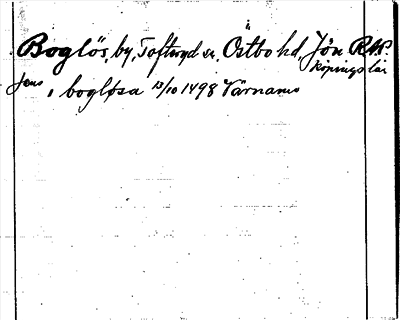 Boglös, by, Toftaryd sn. Östbo hd, Jön R.A.P.
köpings län
Jens i bogløsa 13/10 1498 Värnamo